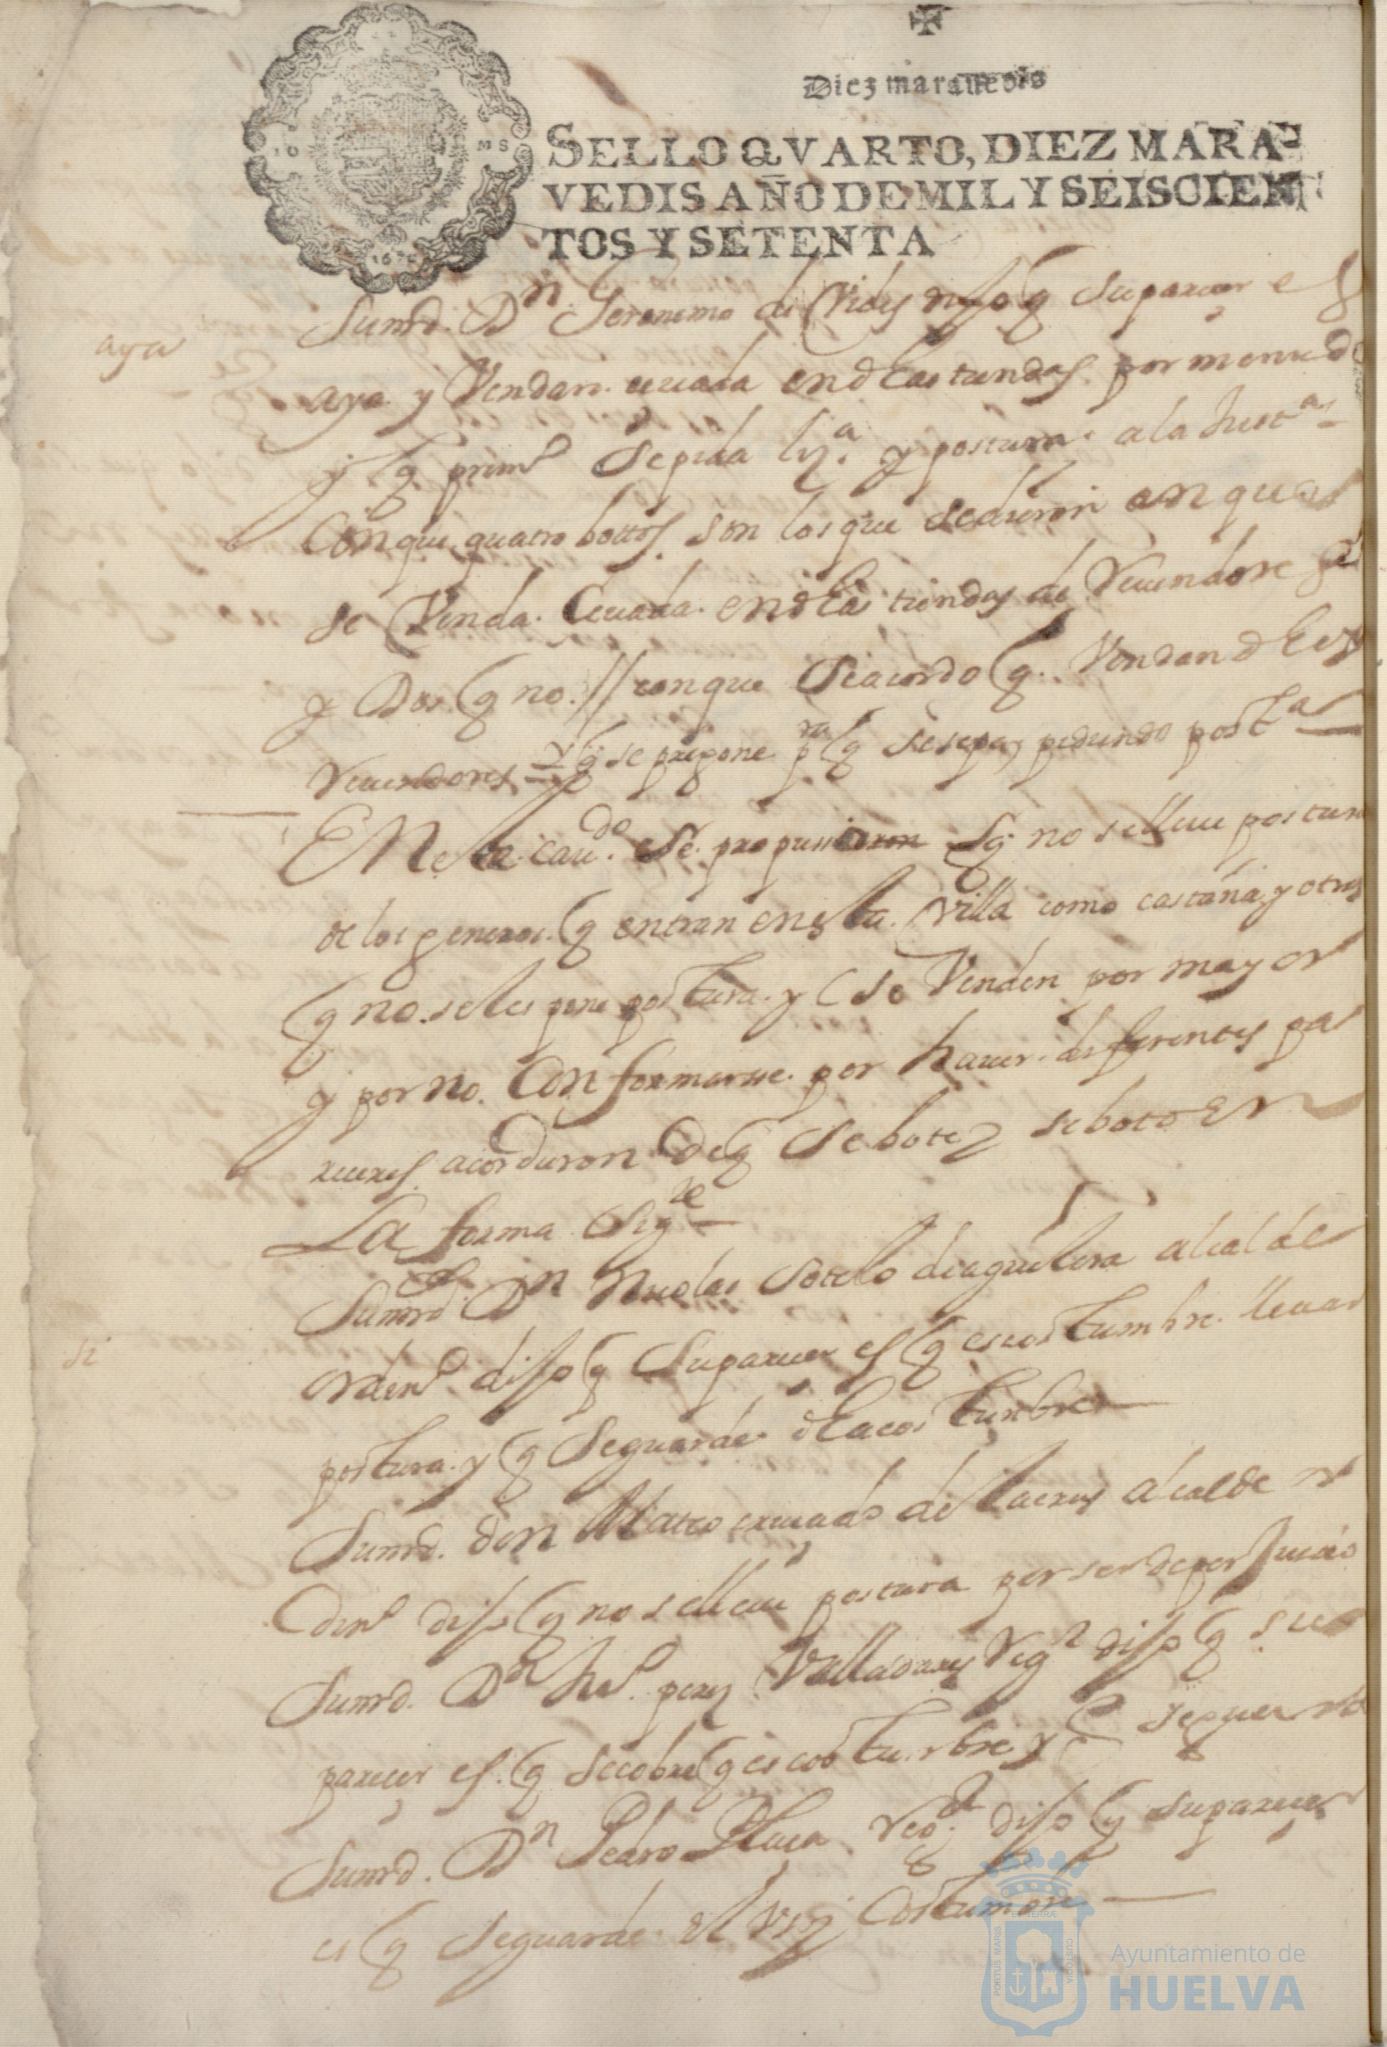 Diez marauedis
SELLO QVARTO, DIEZ MARA-
VEDIS AÑO DE MIL Y SEISCIEN
TOS Y SETENTA
Sumrd. Dn. Geronimo de Vides dijo q su parecer e q
aya
aya y Vendan ceuada en las tiendas por menudo
y q primº se pida liz.a y postura a la Just.a
Con que quatro bottos son los que dieron en que
se Venda Ceuada en las tiendas de Vecendores
y Dos q no // con que se acordo q Vendan
Vecendores y q se pregone pra q se sepa, pidiendo post.a
En este caudo. se propusieron q no se lleue postura
de los generos q entran en esta Villa como castaña y otros
q no se les pone postura y se Venden por mayor
y por no Conformarse por hauer diferentes pa
receres acordaron de q se bote y se boto En
La forma Sigte
Sumrd. Dn Nicolas Sotelo de aguilera alcalde
ordinº dijo q Su parecer es q es costumbre lleuar
si
postura y q Se guarde la costumbre
Sumrd. don Mateo alcalde or
dinº dijo q no se lleue postura por ser de perjuicio
Sumrd. Dn perez Valladares Regor dijo q su
parecer es q se cobre q es costumbre y
Sumrd. Dn Pedro Regor dijo q su parecer
es q Se guarde el uso y Costumbre
PORTUS MARIS
ET TERRÆ
CUSTODIA
Ayuntamiento de
HUELVA